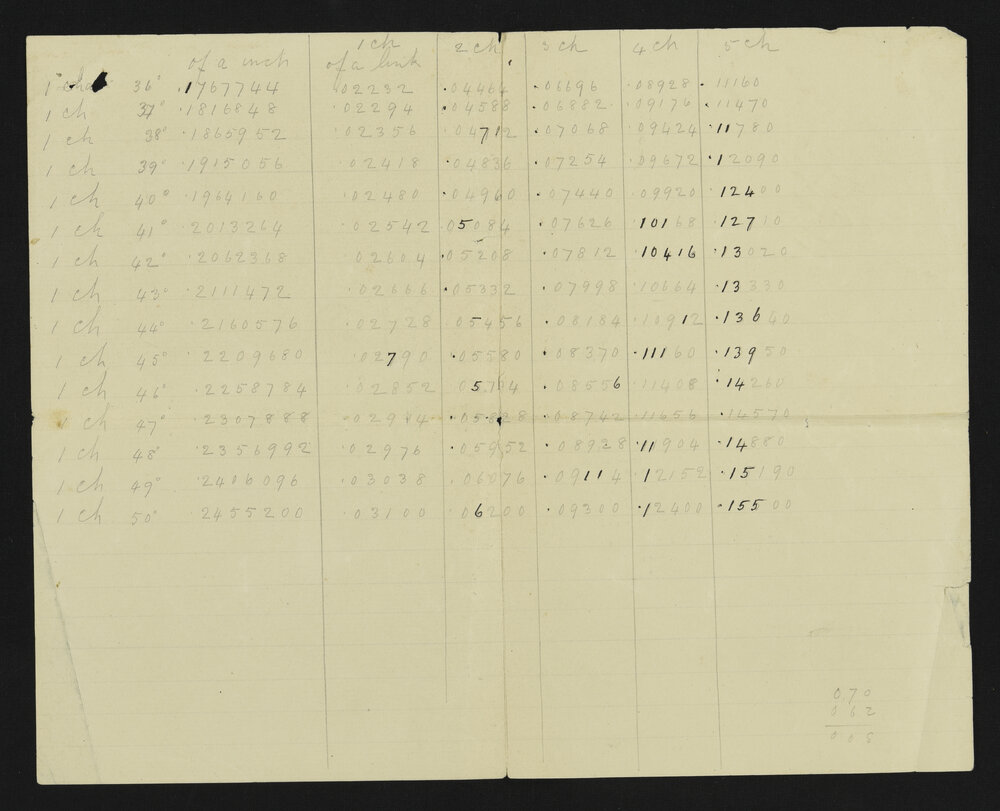 of a inch 1 ch of a link 2 ch 3 ch 4 ch 5 ch
1 cha 36° .1767744 .02232 .04464 .06696 .08928 .11160
1 ch 37° .1816848 .02294 .04588 .06882 .09176 .11470
1 ch 38° .1865952 .02356 .04712 .07068 .09424 .11780
1 ch 39° .1915056 .02418 .04836 .07254 .09672 .12090
1 ch 40° .1964160 .02480 .04960 .07440 .09920 .12400
1 ch 41° .2013264 .02542 .05084 .07626 .10168 .12710
1 ch 42° .2062368 .02604 .05208 .07812 .10416 .13020
1 ch 43° .2111472 .02666 .05332 .07998 .10664 .13330
1 ch 44° .2160576 .02728 .05456 .08184 .10912 .13640
1 ch 45° .2209680 .02790 .05580 .08370 .11160 .13950
1 ch 46° .2258784 .02852 .05704 .08556 .11408 .14260
1 ch 47° .2307888 .02914 .05828 .08742 .11656 .14570
1 ch 48° .2356992 .02976 .05952 .08928 .11904 .14880
1 ch 49° .2406096 .03038 .06076 .09114 .12152 .15190
1 ch 50° .2455200 .03100 .06200 .09300 .12400 .15500
0.70
062
008